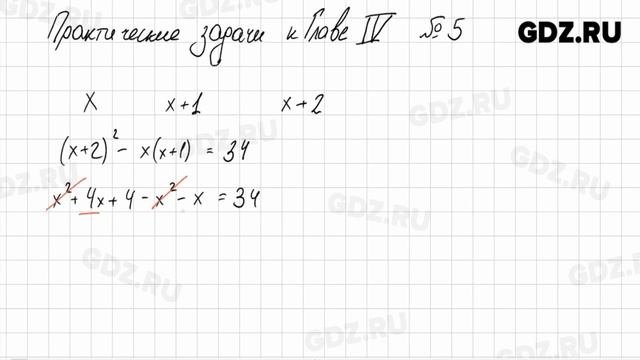 Практические задачи к Главе IV № 5 GDZ.RU
x x+1 x+2
(x+2)² - x(x+1) = 34
x² + 4x + 4 - x² - x = 34
GDZ.RU
GDZ.RU
GDZ.RU
GDZ.RU
GDZ.RU
GDZ.RU
GDZ.RU
GDZ.RU